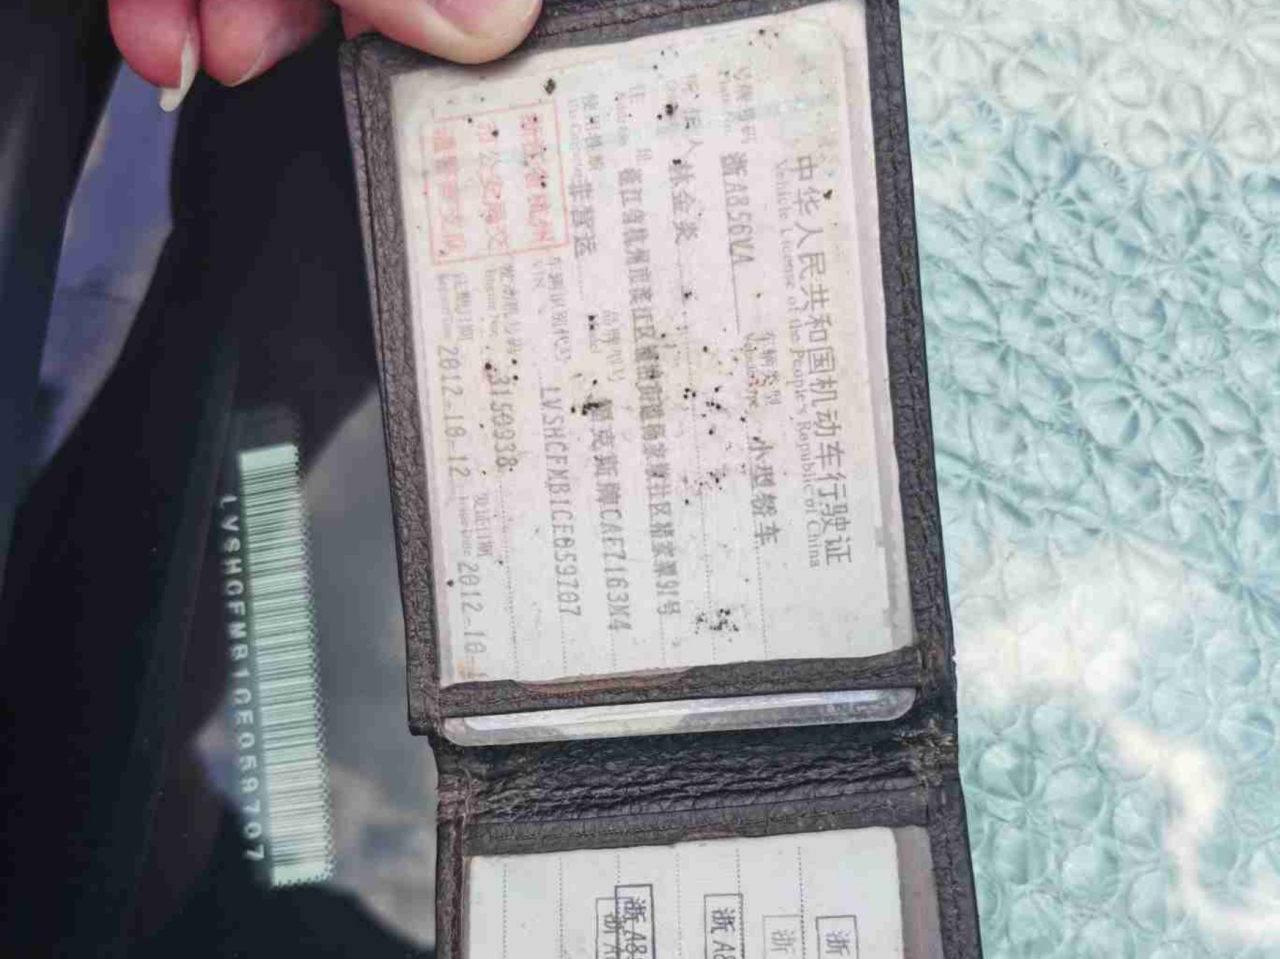 中华人民共和国机动车行驶证
Vehicle License of the People's Republic of China
号牌号码 浙A856VA 车辆类型 小型轿车
所有人 林金炎
住址 浙江省杭州市滨江区
使用性质 非营运 品牌型号 福克斯牌CAF7163M4
浙江省杭州
市公安局交
通警察支队
车辆识别代号 LVSHCFMB1CE059707
VIN
发动机号码 3150938
注册日期 2012-10-12 发证日期 2012-10
Issue Date
LVSHCFMB1CE059707
浙
浙
浙A8
浙A8
浙A